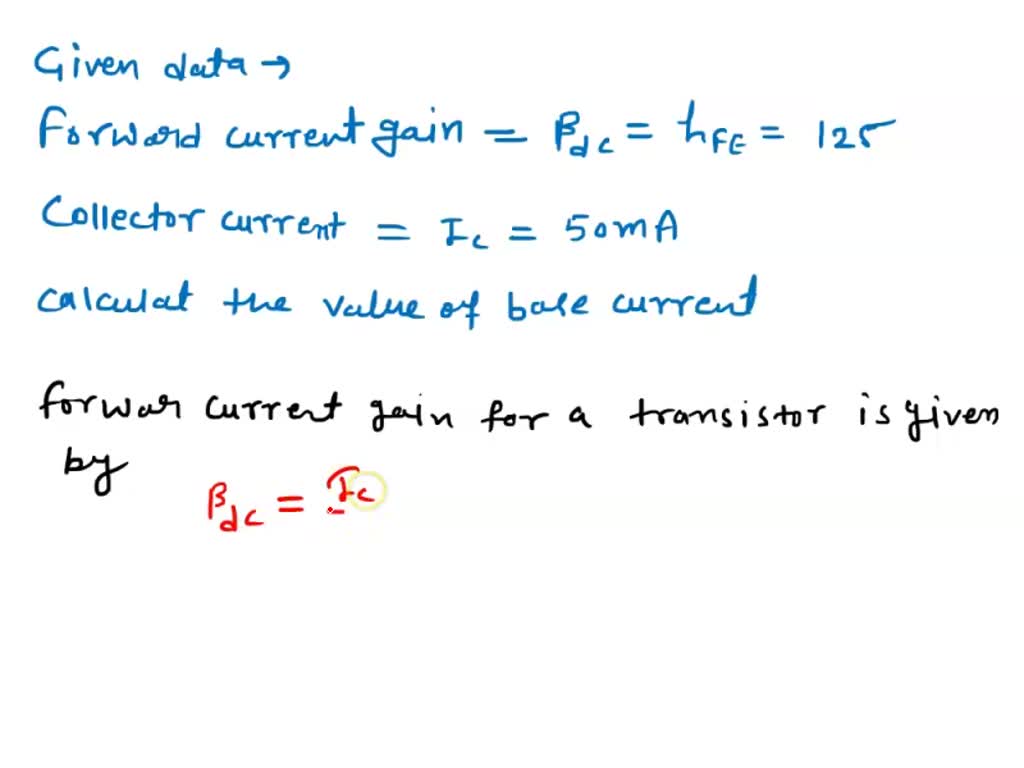 Given data →
Forward current gain = βdc = hFE = 125
Collector current = Ic = 50mA
calculat the value of base current
forwar current gain for a transistor is given
by
βdc = Ic